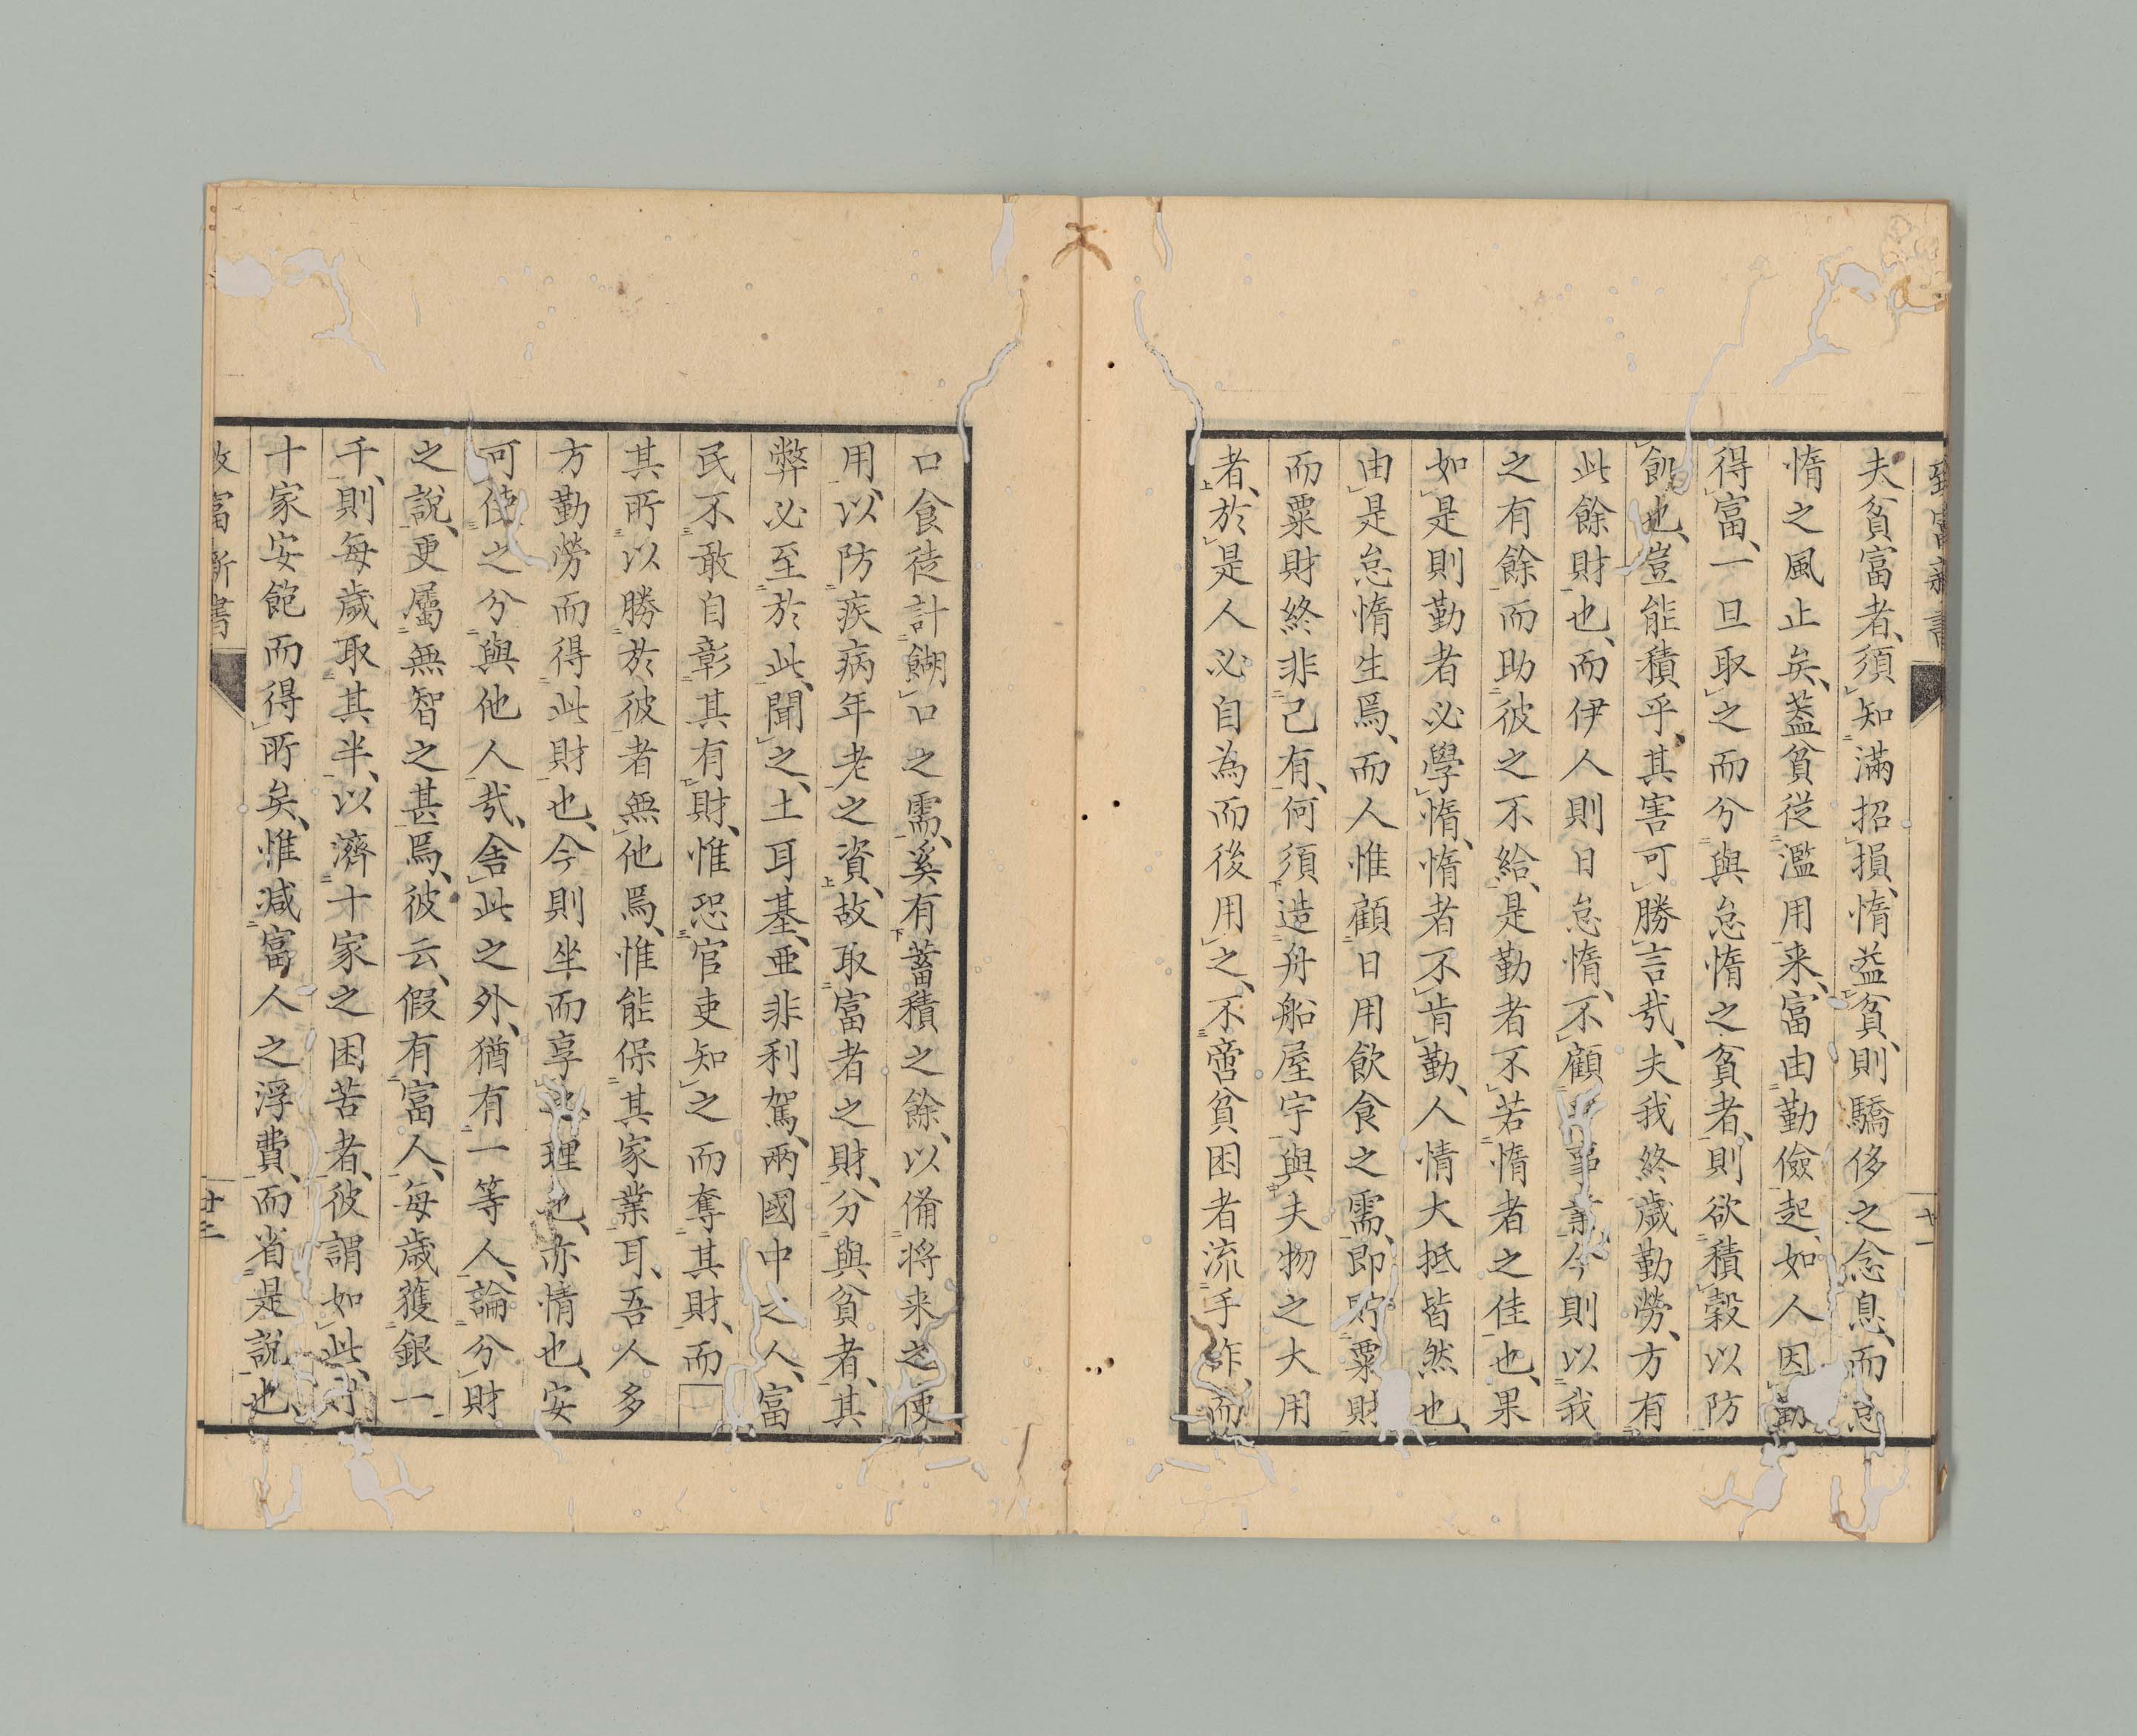 致富新書
夫貧富者、須知滿招損、惰益貧、則驕侈之念息、而怠
惰之風止矣、葢貧從濫用来、富由勤儉起、如人因勤
得富、一旦取之而分與怠惰之貧者、則欲積穀以防
飢也、豈能積乎、其害可勝言㢤、夫我終歲勤勞、方有
此餘財也、而伊人則日怠惰、不顧事業、今則以我
之有餘而助彼之不給、是勤者不若惰者之佳也、果
如是則勤者必學惰、惰者不肯勤、人情大抵皆然也、
由是怠惰生焉、而人惟顧日用飲食之需、即貯粟財
而粟財終非己有、何須造舟船屋宇與夫物之大用
者、於是人必自為而後用之、不啻貧困者流手作、而
口食徒計餬口之需、奚有蓄積之餘、以備将来之便
用、以防疾病年老之資、故取富者之財、分與貧者、其
弊必至於此、聞之、土耳基、亜非利駕、兩國中之人、富
民不敢自彰其有財、惟恐官吏知之而奪其財、而
其所以勝於彼者無他焉、惟能保其家業耳、吾人多
方勤勞而得此財也、今則坐而享理也、亦情也、安
可使之分與他人㢤、舍此之外、猶有一等人、論分財
之說、更屬無智之甚焉、彼云、假有富人、每歲獲銀一
千、則每歲取其半、以濟十家之困苦者、彼謂如此、則
十家安飽而得所矣、惟減富人之浮費、而省是說也、
致富新書